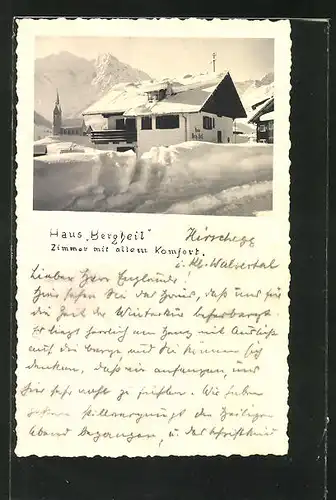 Haus „Bergheil"
Zimmer mit allem Komfort.
Hirschegg
i. Kl. Walsertal
Lieber Herr Englände!
Hier sehen Sie das Haus, daß uns für
die Zeit der Winterkur beherbergt.
Er liegt herrlich am Hang mit Aussicht
auf die Berge und Sie können sich
denken, daß wir anfangen, uns
hier sehr wohl zu fühlen. Wir haben
stillvergnügt den Heiligen
Abend begangen, u. das Christkind